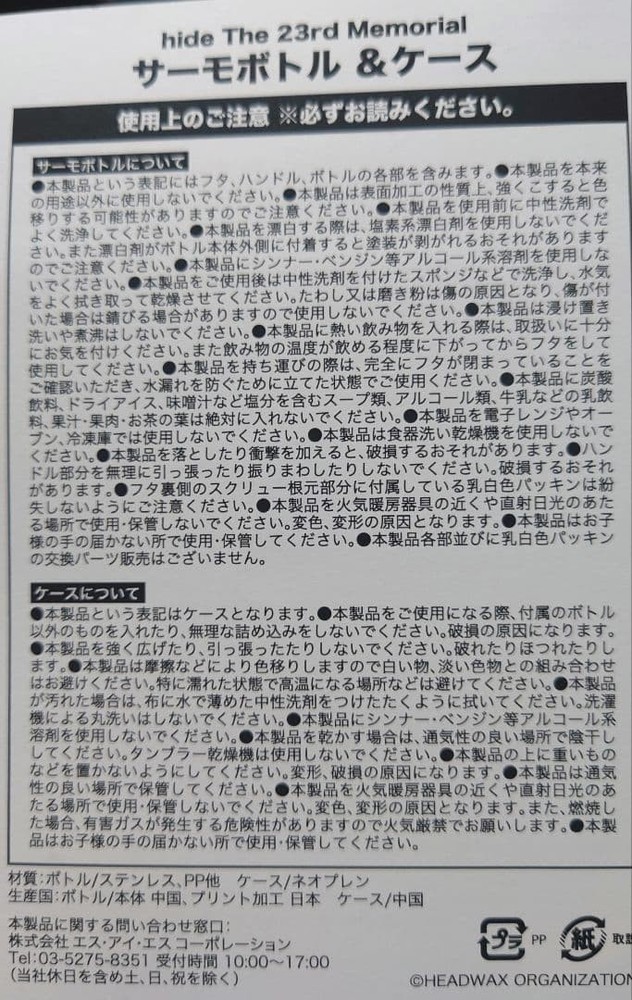 hide The 23rd Memorial
サーモボトル &ケース
使用上のご注意 ※必ずお読みください。
サーモボトルについて
●本製品という表記にはフタ、ハンドル、ボトルの各部を含みます。●本製品を本来
の用途以外に使用しないでください。●本製品は表面加工の性質上、強くこすると色
移りする可能性がありますのでご注意ください。●本製品を使用前に中性洗剤で
よく洗浄してください。●本製品を漂白する際は、塩素系漂白剤を使用しないでくだ
さい。また漂白剤がボトル本体外側に付着すると塗装が剥がれるおそれがあります
のでご注意ください。●本製品にシンナー・ベンジン等アルコール系溶剤を使用しな
いでください。●本製品をご使用後は中性洗剤を付けたスポンジなどで洗浄し、水気
をよく拭き取って乾燥させてください。たわし又は磨き粉は傷の原因となり、傷が付
いた場合は錆びる場合がありますので使用しないでください。●本製品は浸け置き
洗いや煮沸はしないでください。●本製品に熱い飲み物を入れる際は、取扱いに十分
にお気を付けください。また飲み物の温度が飲める程度に下がってからフタをして
使用してください。●本製品を持ち運びの際は、完全にフタが閉まっていることを
ご確認いただき、水漏れを防ぐために立てた状態でご使用ください。●本製品に炭酸
飲料、ドライアイス、味噌汁など塩分を含むスープ類、アルコール類、牛乳などの乳飲
料、果汁・果肉・お茶の葉は絶対に入れないでください。●本製品を電子レンジやオー
ブン、冷凍庫では使用しないでください。●本製品は食器洗い乾燥機を使用しないで
ください。●本製品を落としたり衝撃を加えると、破損するおそれがあります。●ハン
ドル部分を無理に引っ張ったり振りまわしたりしないでください。破損するおそれ
があります。●フタ裏側のスクリュー根元部分に付属している乳白色パッキンは紛
失しないようにご注意ください。●本製品を火気暖房器具の近くや直射日光のあた
る場所で使用・保管しないでください。変色、変形の原因となります。●本製品はお子
様の手の届かない所で使用・保管してください。●本製品各部並びに乳白色パッキン
の交換パーツ販売はございません。
ケースについて
●本製品という表記はケースとなります。●本製品をご使用になる際、付属のボトル
以外のものを入れたり、無理な詰め込みをしないでください。破損の原因になります。
●本製品を強く広げたり、引っ張ったたりしないでください。破れたりほつれたりし
ます。●本製品は摩擦などにより色移りしますので白い物、淡い色物との組み合わせ
はお避けください。特に濡れた状態で高温になる場所などは避けてください。●本製品
が汚れた場合は、布に水で薄めた中性洗剤をつけたたくように拭いてください。洗濯
機による丸洗いはしないでください。●本製品にシンナー・ベンジン等アルコール系
溶剤を使用しないでください。●本製品を乾かす場合は、通気性の良い場所で陰干し
してください。タンブラー乾燥機は使用しないでください。●本製品の上に重いもの
などを置かないようにしてください。変形、破損の原因になります。●本製品は通気
性の良い場所で保管してください。●本製品を火気暖房器具の近くや直射日光のあ
たる場所で使用・保管しないでください。変色、変形の原因となります。また、燃焼し
た場合、有害ガスが発生する危険性がありますので火気厳禁でお願いします。●本製
品はお子様の手の届かない所で使用・保管してください。
材質:ボトル/ステンレス、PP他 ケース/ネオプレン
生産国:ボトル/本体 中国、プリント加工 日本 ケース/中国
本製品に関する問い合わせ窓口:
株式会社 エス・アイ・エス コーポレーション
Tel:03-5275-8351 受付時間 10:00〜17:00
(当社休日を含め土、日、祝を除く)
プラ PP 紙 取
©HEADWAX ORGANIZATION